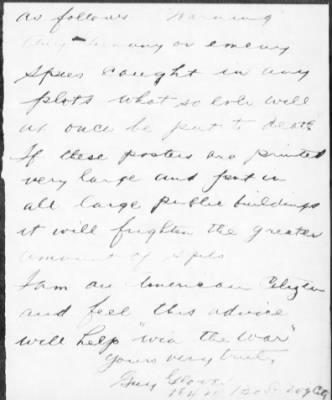 as follows "Warning"
any or enemy
Spies caught in any
plots what so ever will
at once be put to death
If these posters are printed
very large and put in
all large public buildings
it will frighten the greater
amount of spies
I am an American Citizen
and feel this advice
will help "win the war"
Yours very truly
Guy Glover